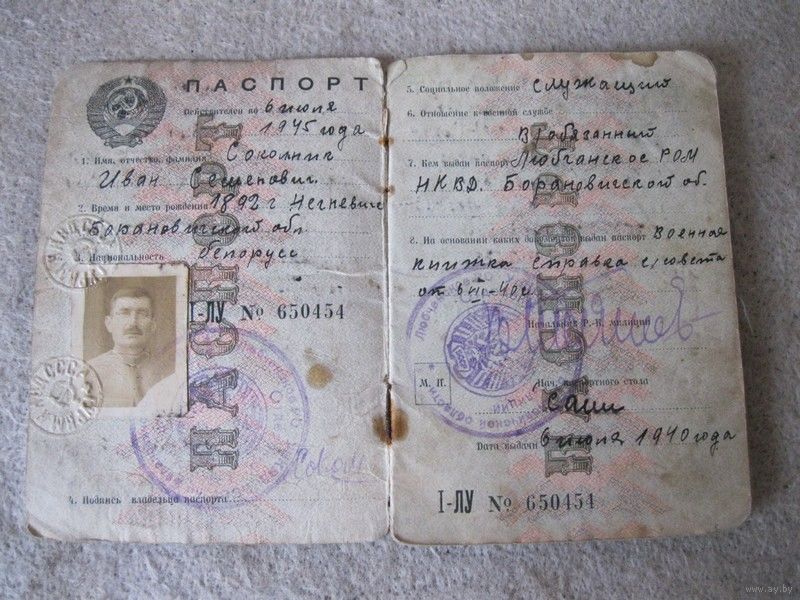 ПАСПОРТ
Действителен по 6 июля
1945 года
1. Имя, отчество, фамилия Соколик
Иван Семенович.
2. Время и место рождения 1892 г Негневичи
Барановичской обл
3. Национальность белорусс
I-ЛУ № 650454
4. Подпись владельца паспорта
5. Социальное положение Служащий
6. Отношение к военной службе
В/обязанный
7. Кем выдан паспорт Любчанское РОМ
НКВД. Барановичской об.
8. На основании каких документов выдан паспорт Военная
книжка справка с/совета
от 6/VII-40 г.
Начальник Р.-К. милиции
М. П.
Нач. паспортного стола
Дата выдачи 6 июля 1940 года
I-ЛУ № 650454
www.ay.by